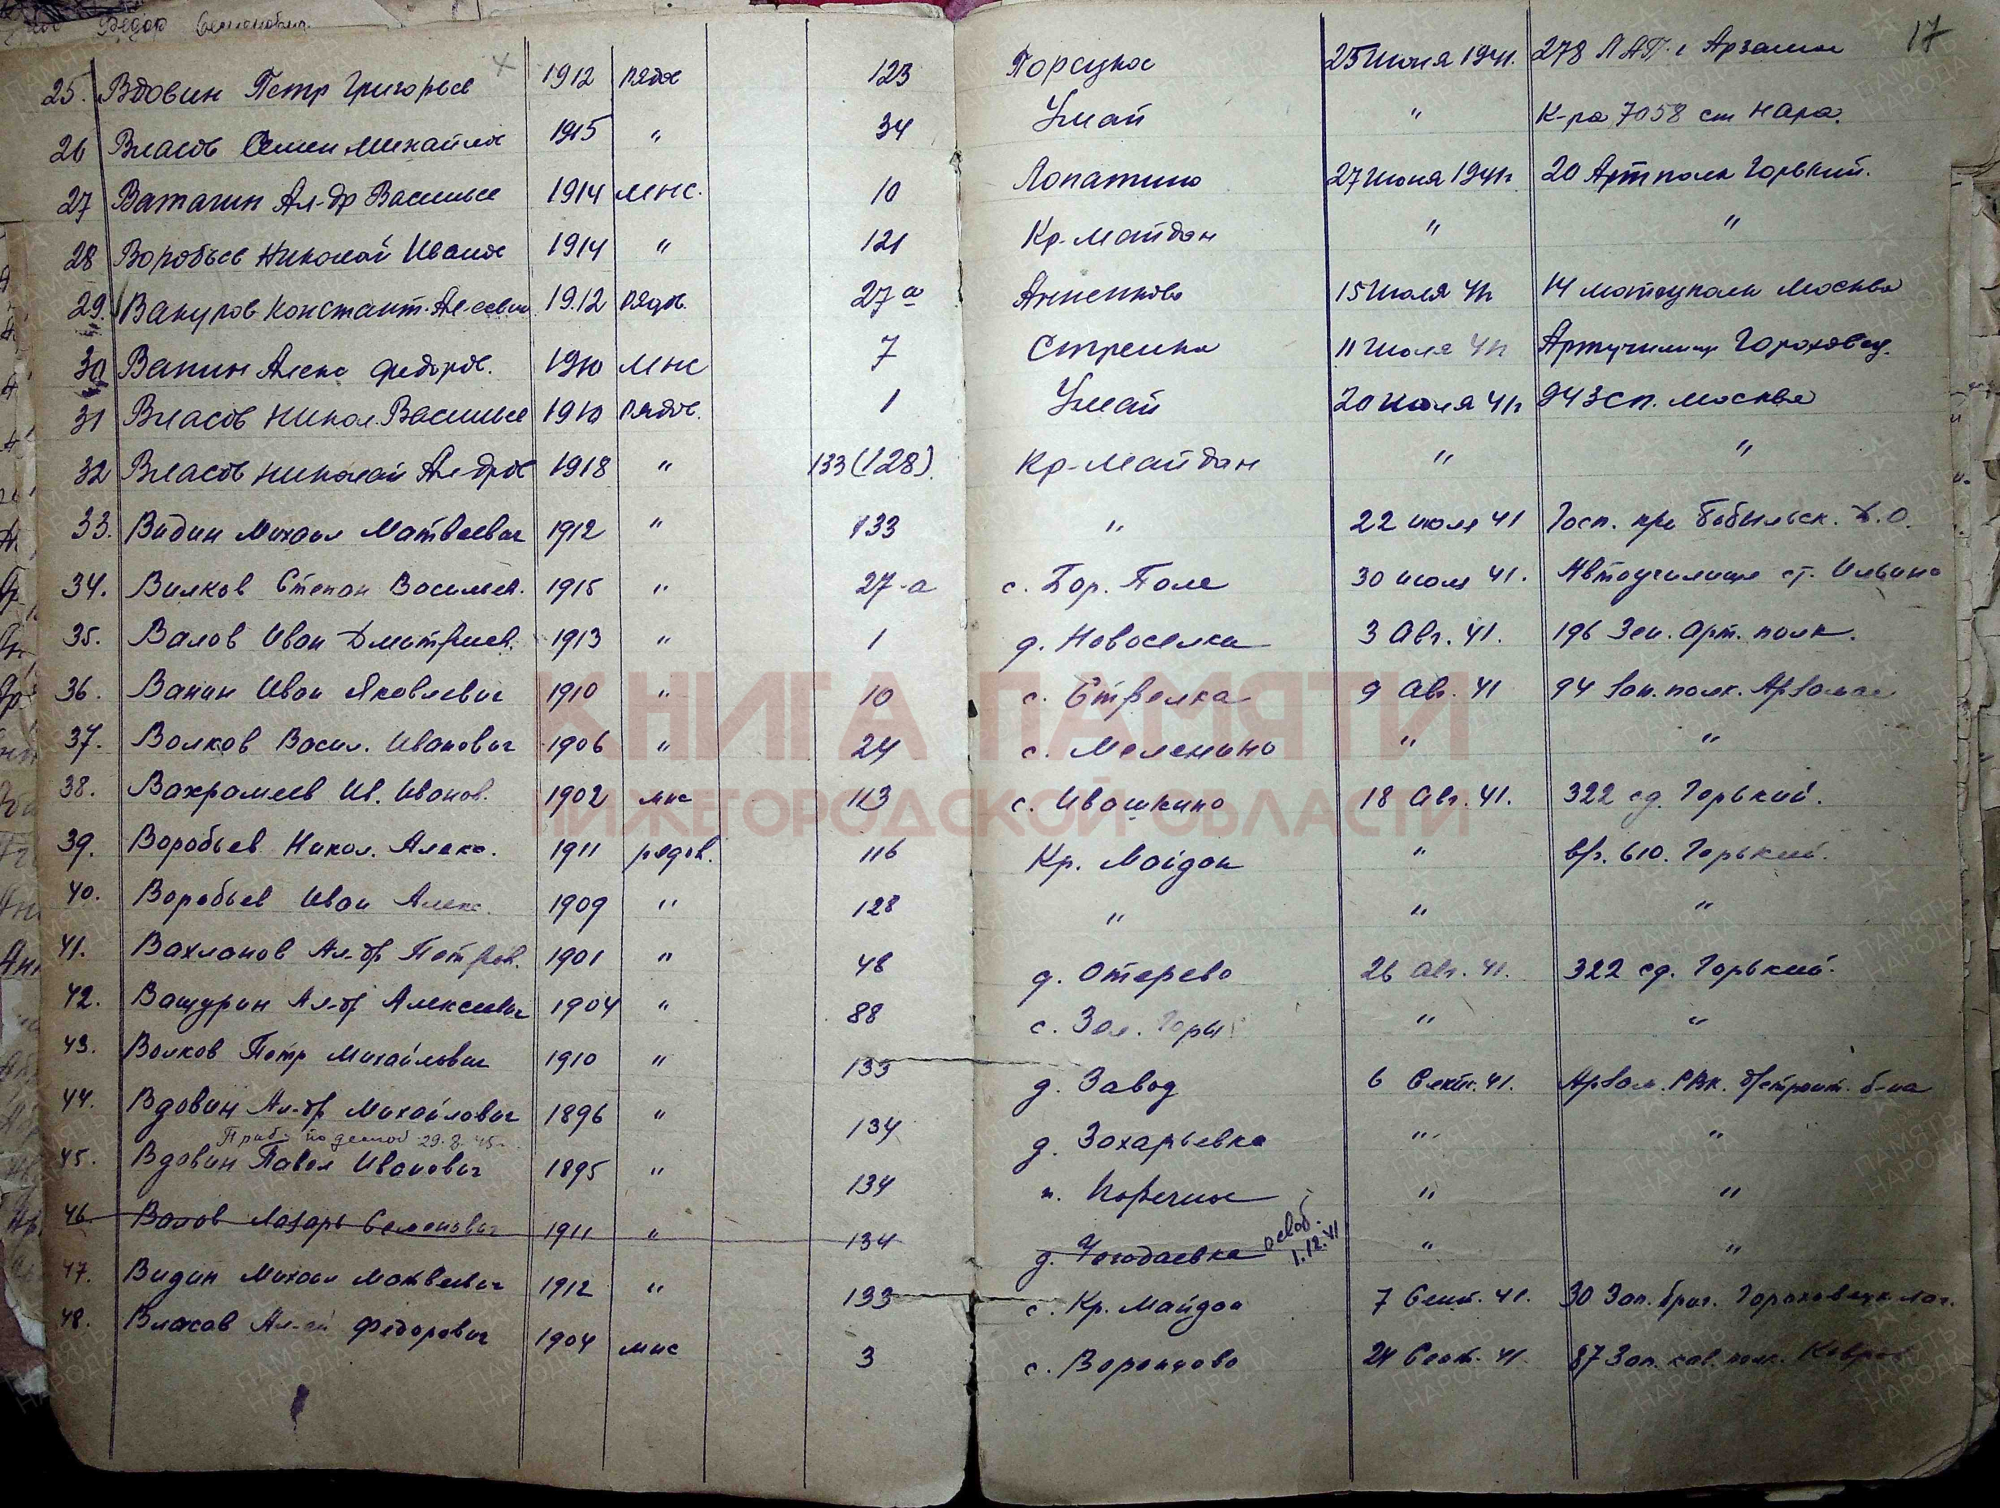 Федор Семенович 17
25. Вдовин Петр Григорьев 1912 рядов 123 Порецкое 25 Июня 1941г. 278 ЛАП. г Арзамас
26 Власов Семен Михайлов 1915 " 34 Умай " К-ра 7058 ст Нара.
27 Ватагин Ал-др Василье 1914 МНС. 10 Лопатино 27 Июня 1941г 20 Артполк Горький.
28 Воробьев Николай Иванов 1914 " 121 Кр-Майдан " "
29. Вакуров Констант. Ал-сеевич 1912 рядов. 27а Анненково 15 Июля 41г 14 мотоцполк Москва
30 Ванин Алекс Федоров. 1910 МНС 7 Стрелка 11 Июля 41г Артучилищ Гороховец.
31 Власов Никол. Василье 1910 рядов. 1 Умай 20 Июля 41г 94 ЗСП. Москва
32 Власов Николай Ал-дров 1918 " 133 (128) Кр-Майдан " "
33. Видин Михаил Матвеевич 1912 " 133 " 22 июля 41 Госп. при Бобыльск. Д.О.
34. Вилков Степан Васильев. 1915 " 27-а с. Бор. Поле 30 июля 41. Автоучилище ст. Ильино
35. Валов Иван Дмитриев. 1913 " 1 д. Новоселка 3 Авг. 41. 196 Зен. Арт. полк.
36. Ванин Иван Яковлевич 1910 " 10 с. Стрелка 9 Авг. 41 94 Зап. полк. Арзамас
37. Волков Васил. Иванович 1906 " 24 с. Меленино " "
38. Вахромеев Ив. Иванов. 1902 мнс 113 с. Ивашкино 18 Авг. 41. 322 сд. Горький.
39. Воробьев Никол. Алекс. 1911 рядов. 116 Кр. Майдан " в/ч. 610. Горький.
40. Воробьев Иван Алекс. 1909 " 128 " " "
41. Вахланов Ал-др Петров. 1901 " 48 д. Отерево 26 Авг. 41. 322 сд. Горький.
42. Ващурин Ал-др Алексеевич 1904 " 88 с. Зел. Горы " "
43. Волков Петр Михайлович 1910 " 133 д. Завод 6 Сент. 41. Арзам. РВк. д/строит. б-на
44. Вдовин Ал-др Михайлович 1896 " 134 д. Захарьевка " "
Приб. по демоб 29.8.45г
45. Вдовин Павел Иванович 1895 " 134 п. Поречье " "
46. Валов Лазарь Семенович 1911 " 134 д. Чогодаевка освоб. 1.12.41 " "
47. Видин Михаил Матвеевич 1912 " 133 с. Кр. Майдан 7 Сент. 41. 30 Зап. бриг. Гороховецк. лаг.
48. Власов Ал-ей Федорович 1904 мнс 3 с. Воронцово 24 Сент. 41. 87 Зап. кав. полк. Ковров
КНИГА ПАМЯТИ
НИЖЕГОРОДСКОЙ ОБЛАСТИ
ПАМЯТЬ НАРОДА